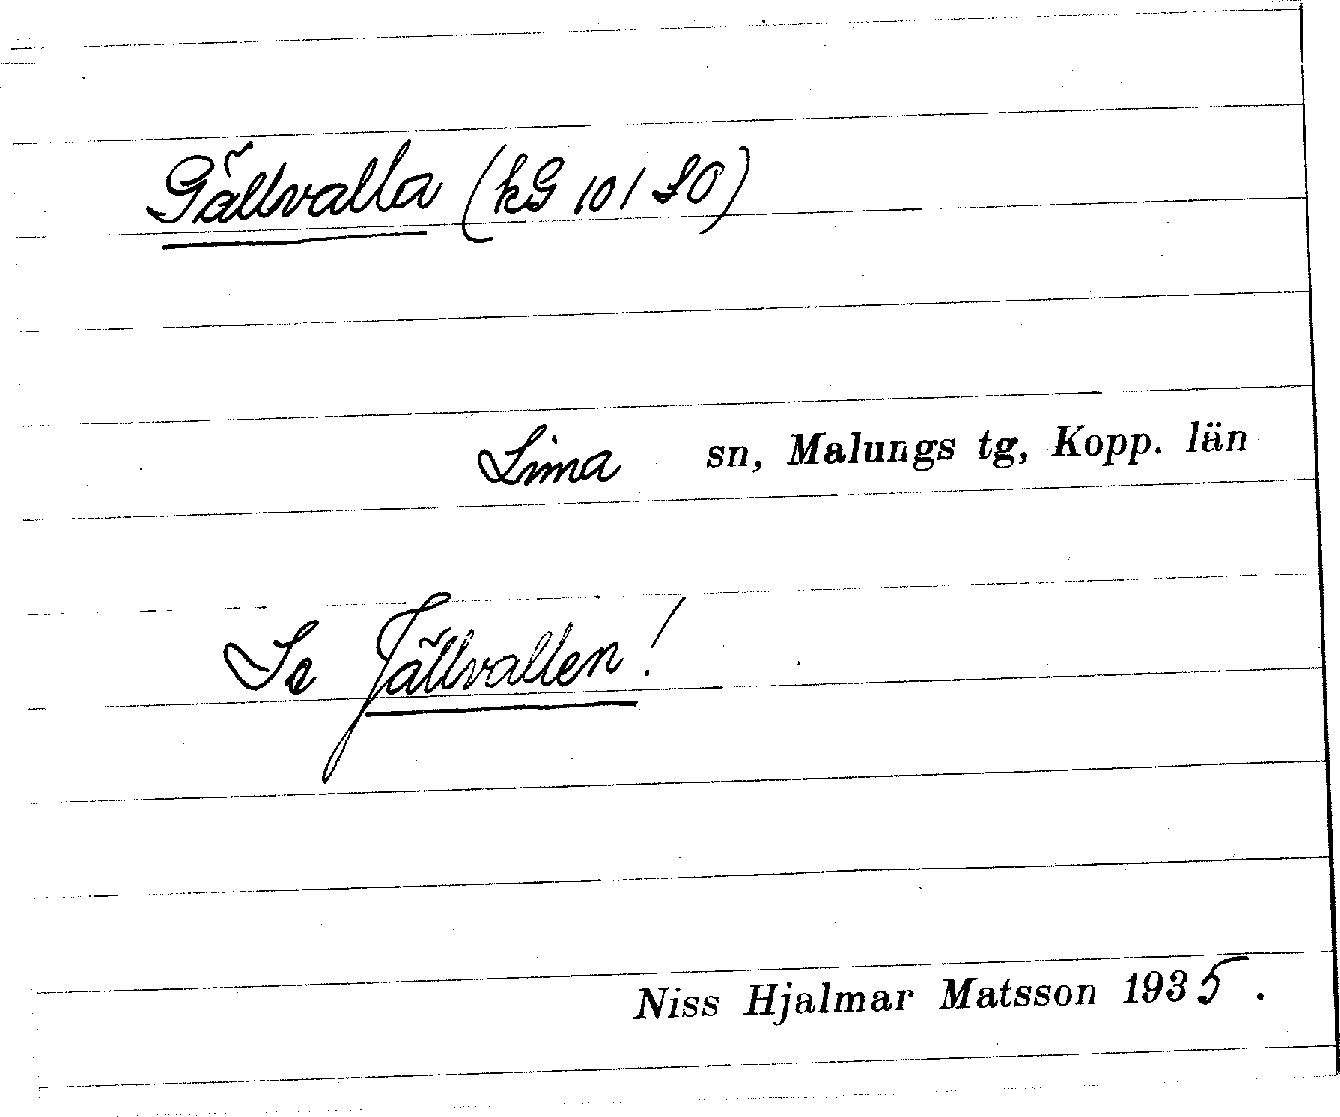 Gällvalla (kG 101 SO)
Lima sn, Malungs tg, Kopp. län
Se Jällvallen!
Niss Hjalmar Matsson 1935.